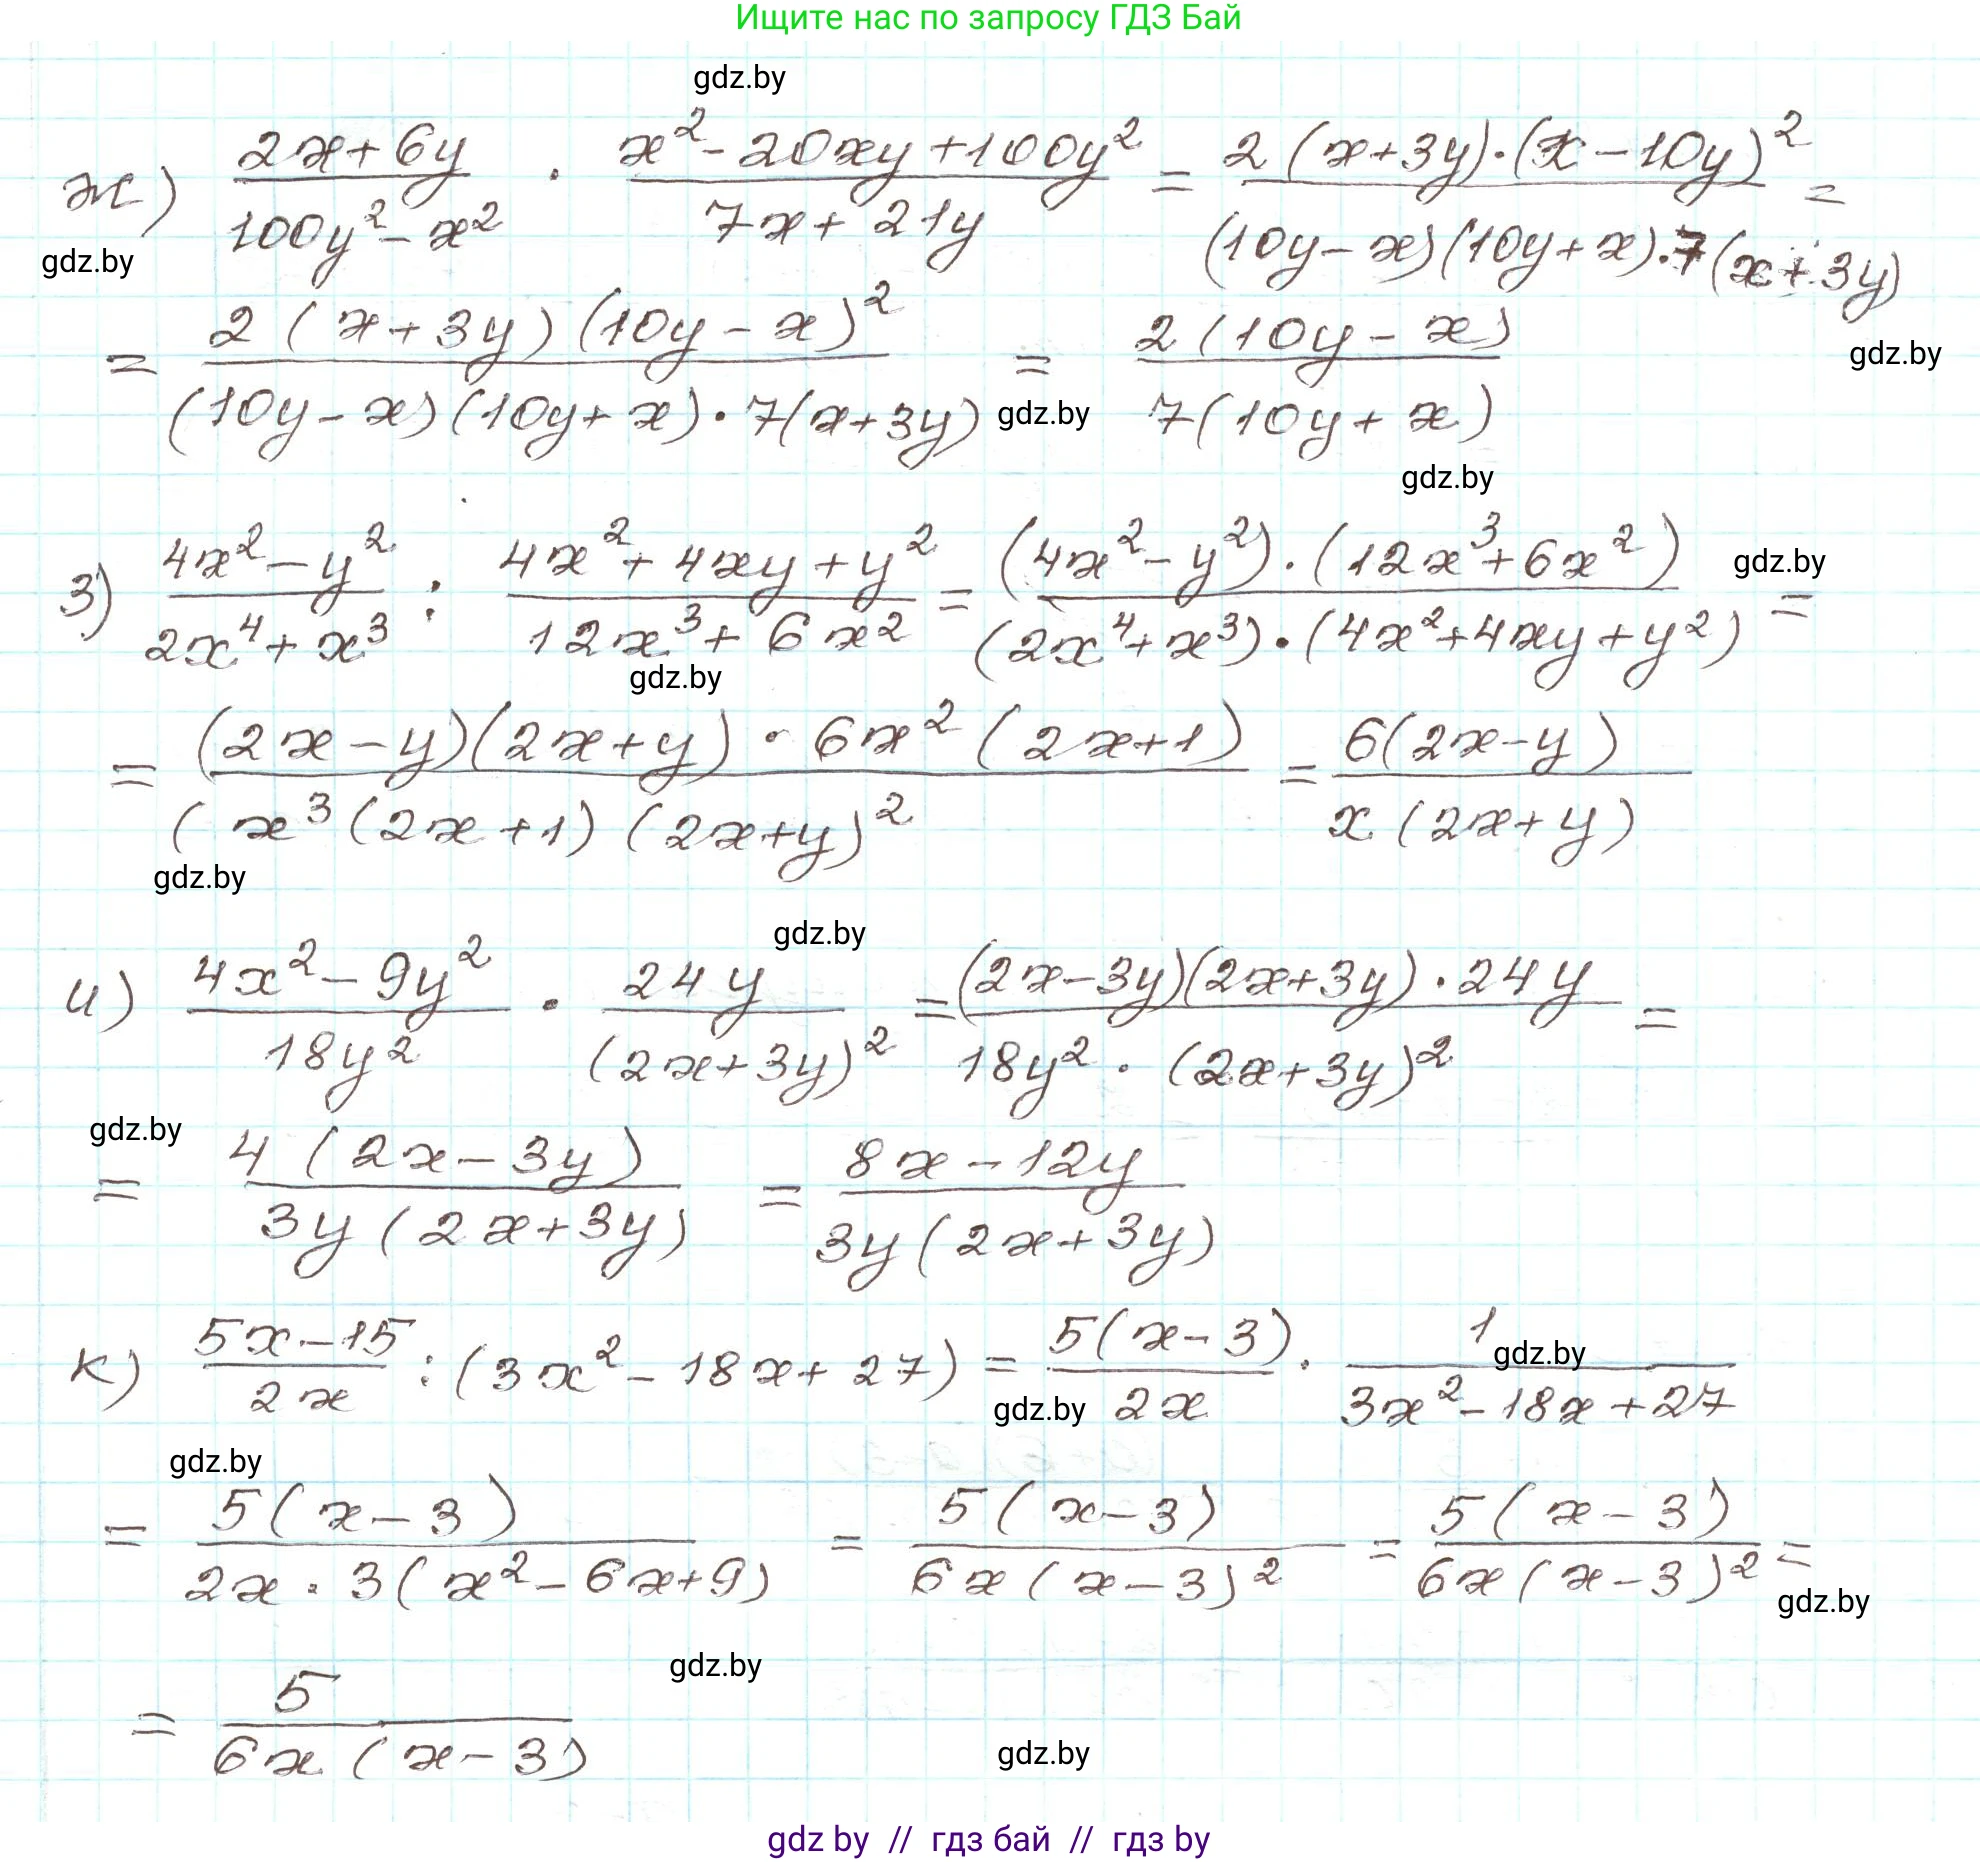 Ищите нас по запросу ГДЗ Бай
gdz.by
ж) (2x+6y)/(100y²-x²) · (x²-20xy+100y²)/(7x+21y) = (2(x+3y)·(x-10y)²)/((10y-x)(10y+x)·7(x+3y)) =
gdz.by
gdz.by
= (2(x+3y)(10y-x)²)/((10y-x)(10y+x)·7(x+3y)) = (2(10y-x))/(7(10y+x))
gdz.by
gdz.by
з) (4x²-y²)/(2x⁴+x³) : (4x²+4xy+y²)/(12x³+6x²) = ((4x²-y²)·(12x³+6x²))/((2x⁴+x³)·(4x²+4xy+y²)) =
gdz.by
gdz.by
= ((2x-y)(2x+y)·6x²(2x+1))/((x³(2x+1)(2x+y)²) = (6(2x-y))/(x(2x+y))
gdz.by
gdz.by
и) (4x²-9y²)/(18y²) · (24y)/((2x+3y)²) = ((2x-3y)(2x+3y)·24y)/(18y²·(2x+3y)²) =
gdz.by
= (4(2x-3y))/(3y(2x+3y)) = (8x-12y)/(3y(2x+3y))
к) (5x-15)/(2x) : (3x²-18x+27) = (5(x-3))/(2x) · 1/(3x²-18x+27)
gdz.by
gdz.by
gdz.by
= (5(x-3))/(2x·3(x²-6x+9)) = (5(x-3))/(6x(x-3)²) = (5(x-3))/(6x(x-3)²) =
gdz.by
gdz.by
= 5/(6x(x-3))
gdz.by
gdz by // гдз бай // гдз by